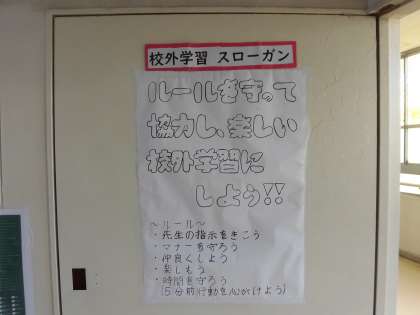 校外学習 スローガン
ルールを守って
協力し、楽しい
校外学習に
しよう!!
〜ルール〜
・先生の指示をきこう
・マナーを守ろう
・仲良くしよう
・楽しもう
・時間を守ろう
(5分前行動を心がけよう)